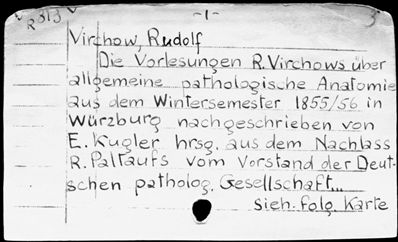 R 313 -1- 3
Virchow, Rudolf
Die Vorlesungen R. Virchows über
allgemeine pathologische Anatomie
aus dem Wintersemester 1855/56 in
Würzburg nachgeschrieben von
E. Kugler hrsg. aus dem Nachlass
R. Paltaufs vom Vorstand der Deut-
schen patholog. Gesellschaft...
Sieh. folg. Karte